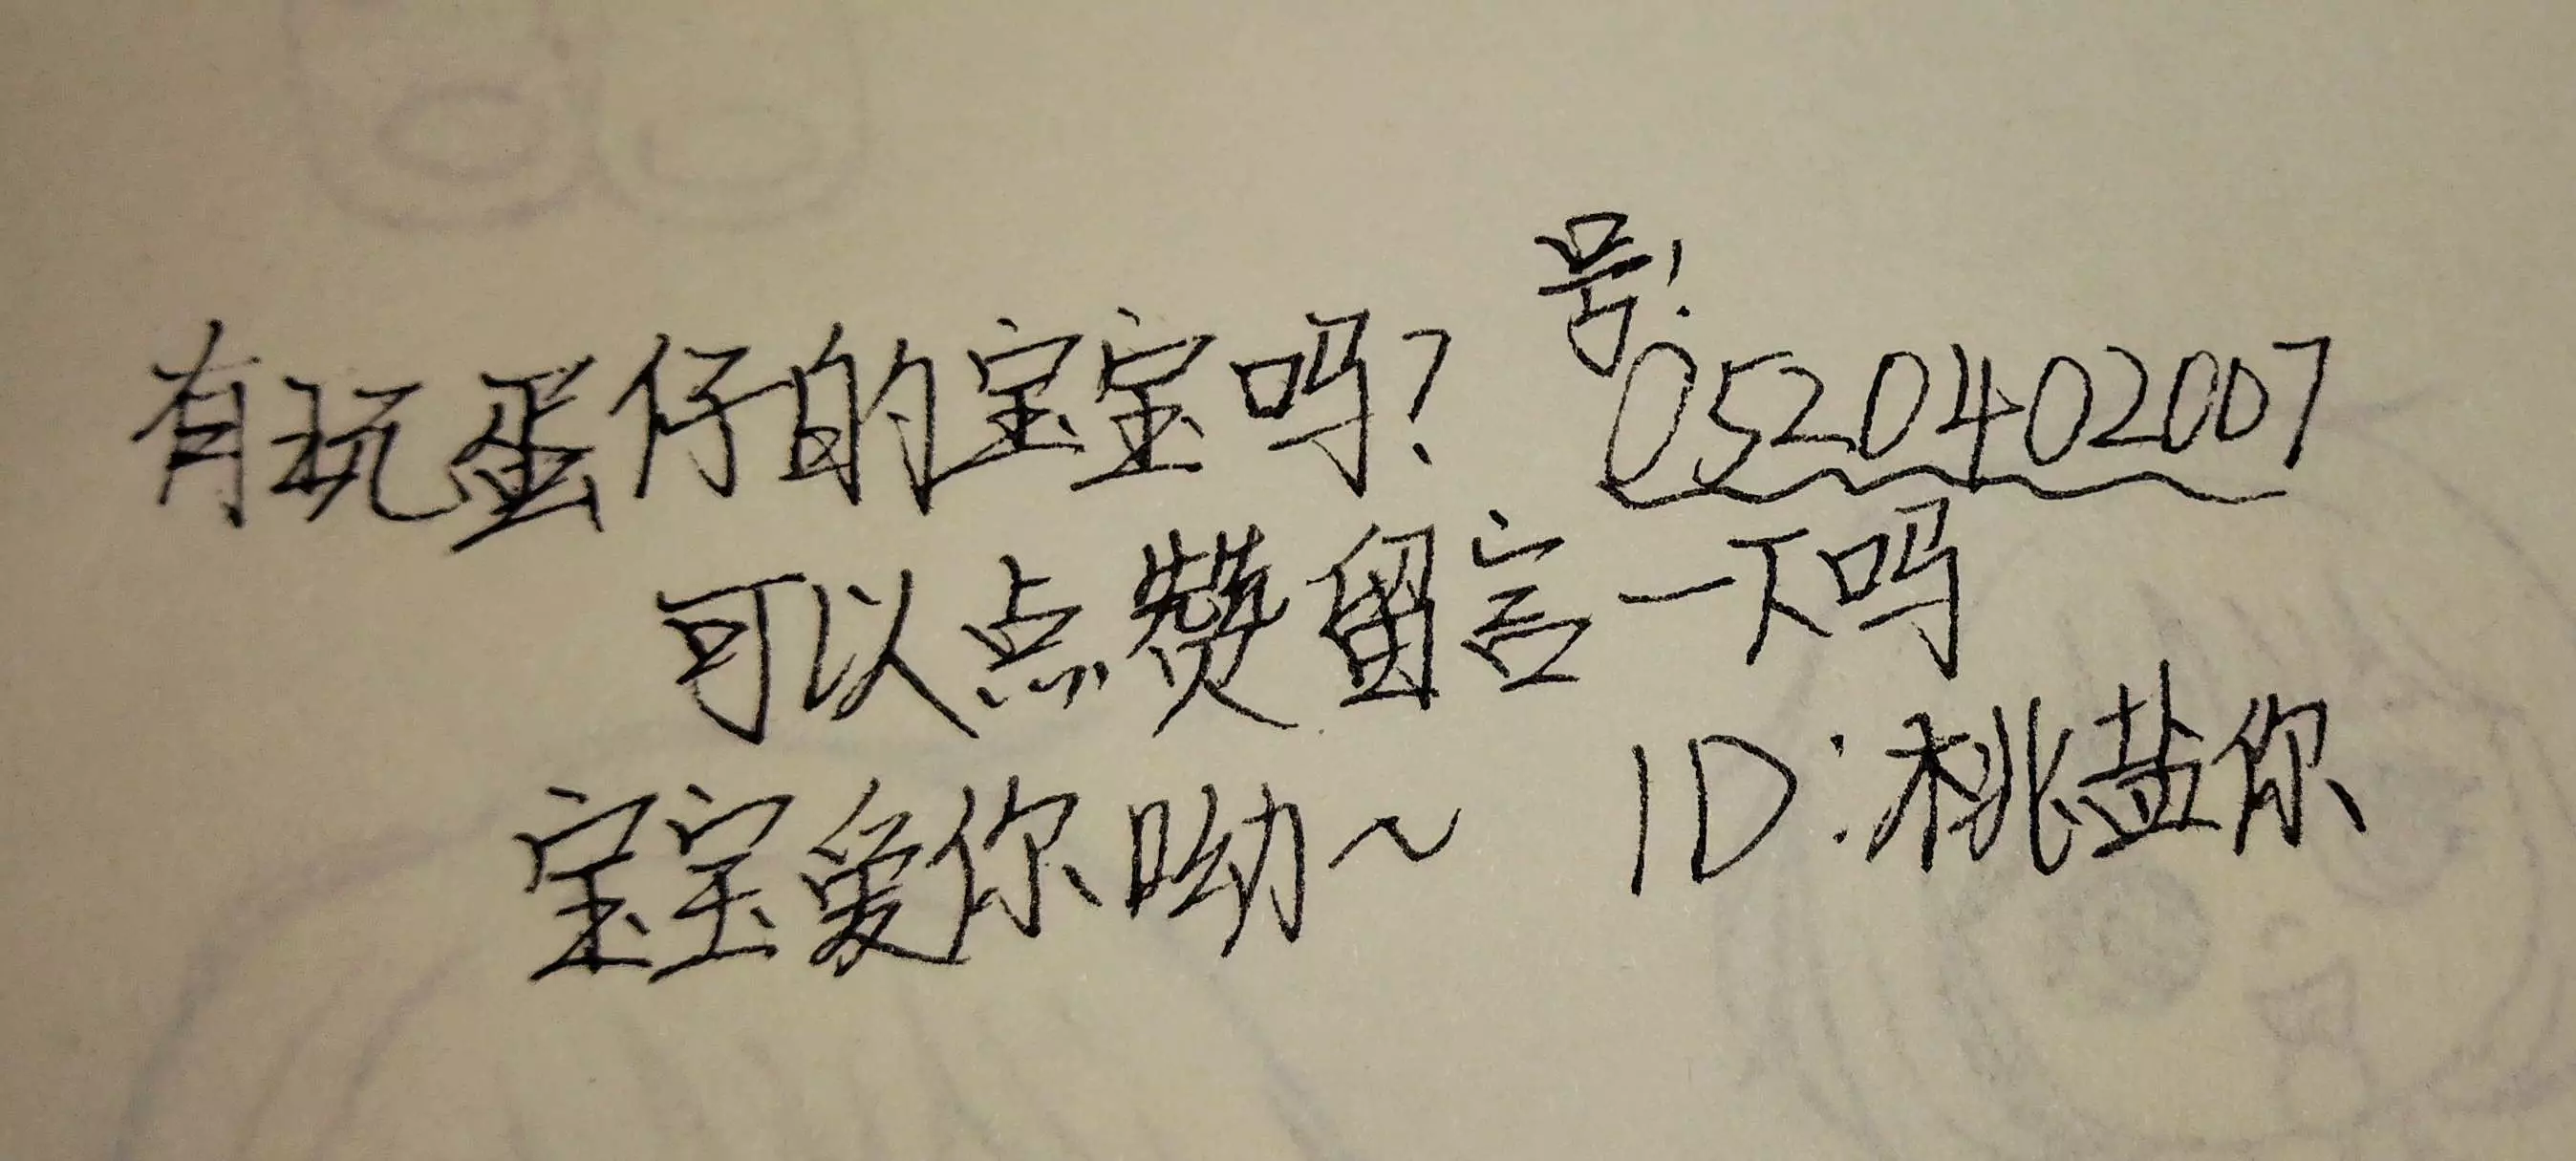 有玩蛋仔的宝宝吗？
号！
0520402007
可以点赞留言一下吗
宝宝爱你呦～
ID：桃盐你